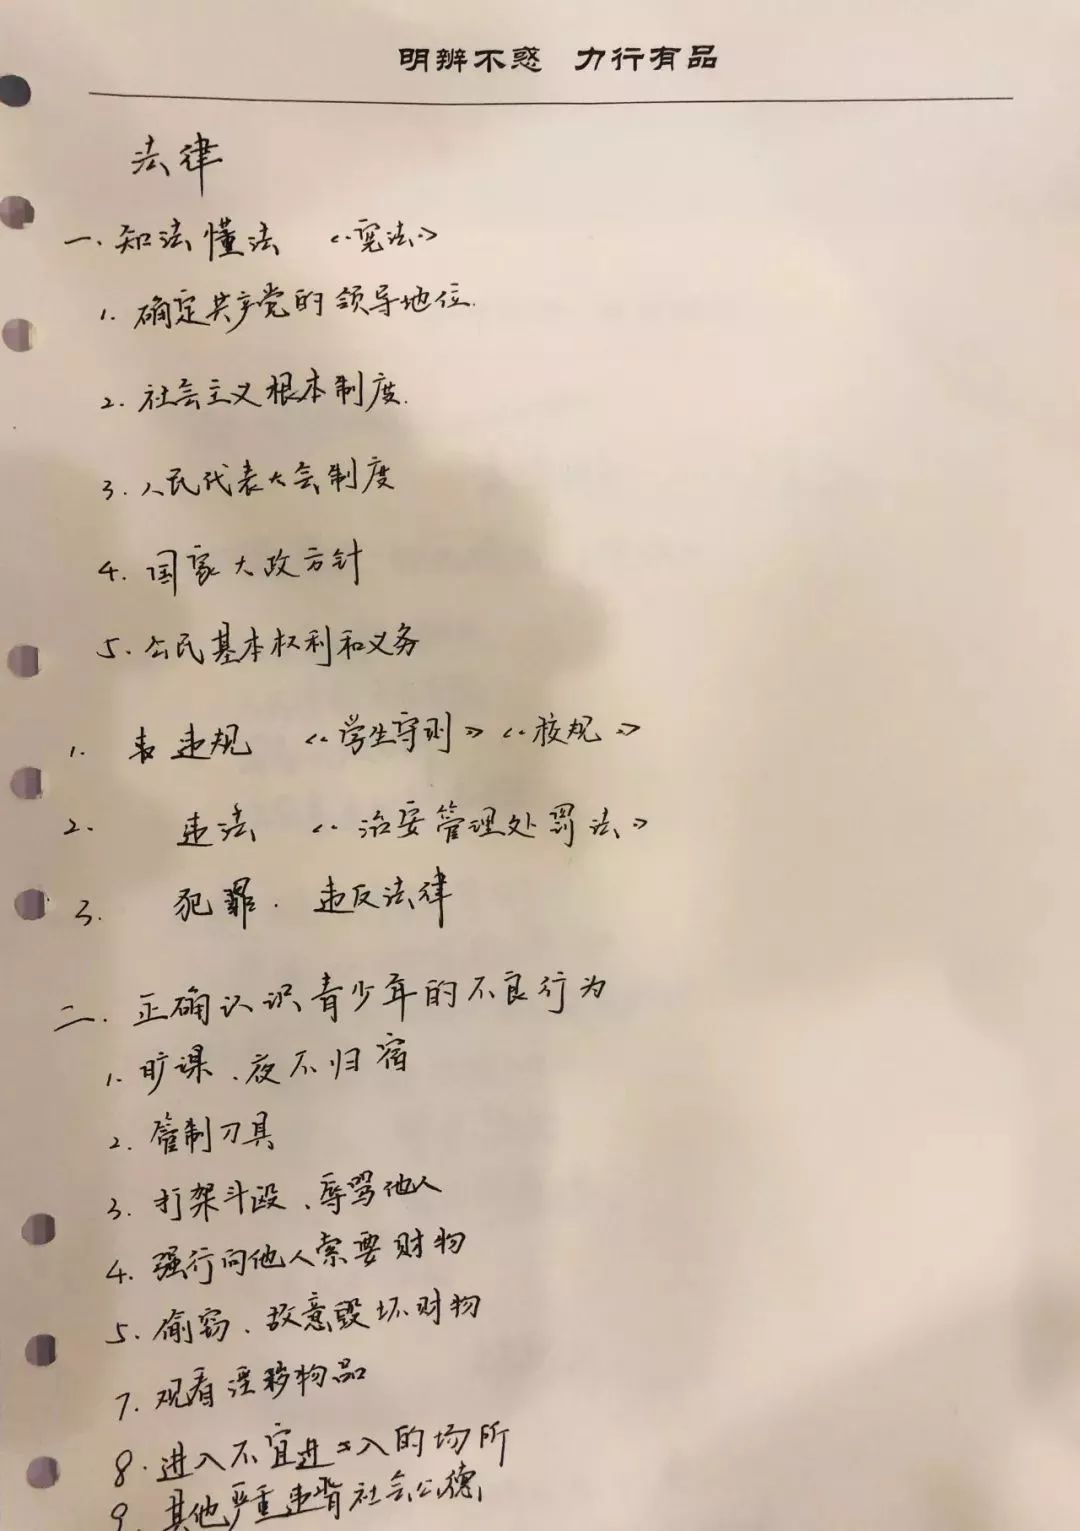 明辨不惑 力行有品
法律
一.知法懂法 《宪法》
1.确定共产党的领导地位.
2.社会主义根本制度.
3.人民代表大会制度
4.国家大政方针
5.公民基本权利和义务
1. 违规 《学生守则》《校规》
2. 违法 《治安管理处罚法》
3. 犯罪. 违反法律
二.正确认识青少年的不良行为
1.旷课、夜不归宿
2.管制刀具
3.打架斗殴、辱骂他人
4.强行向他人索要财物
5.偷窃、故意毁坏财物
7.观看淫秽物品
8.进入不宜进入的场所
9.其他严重违背社会公德